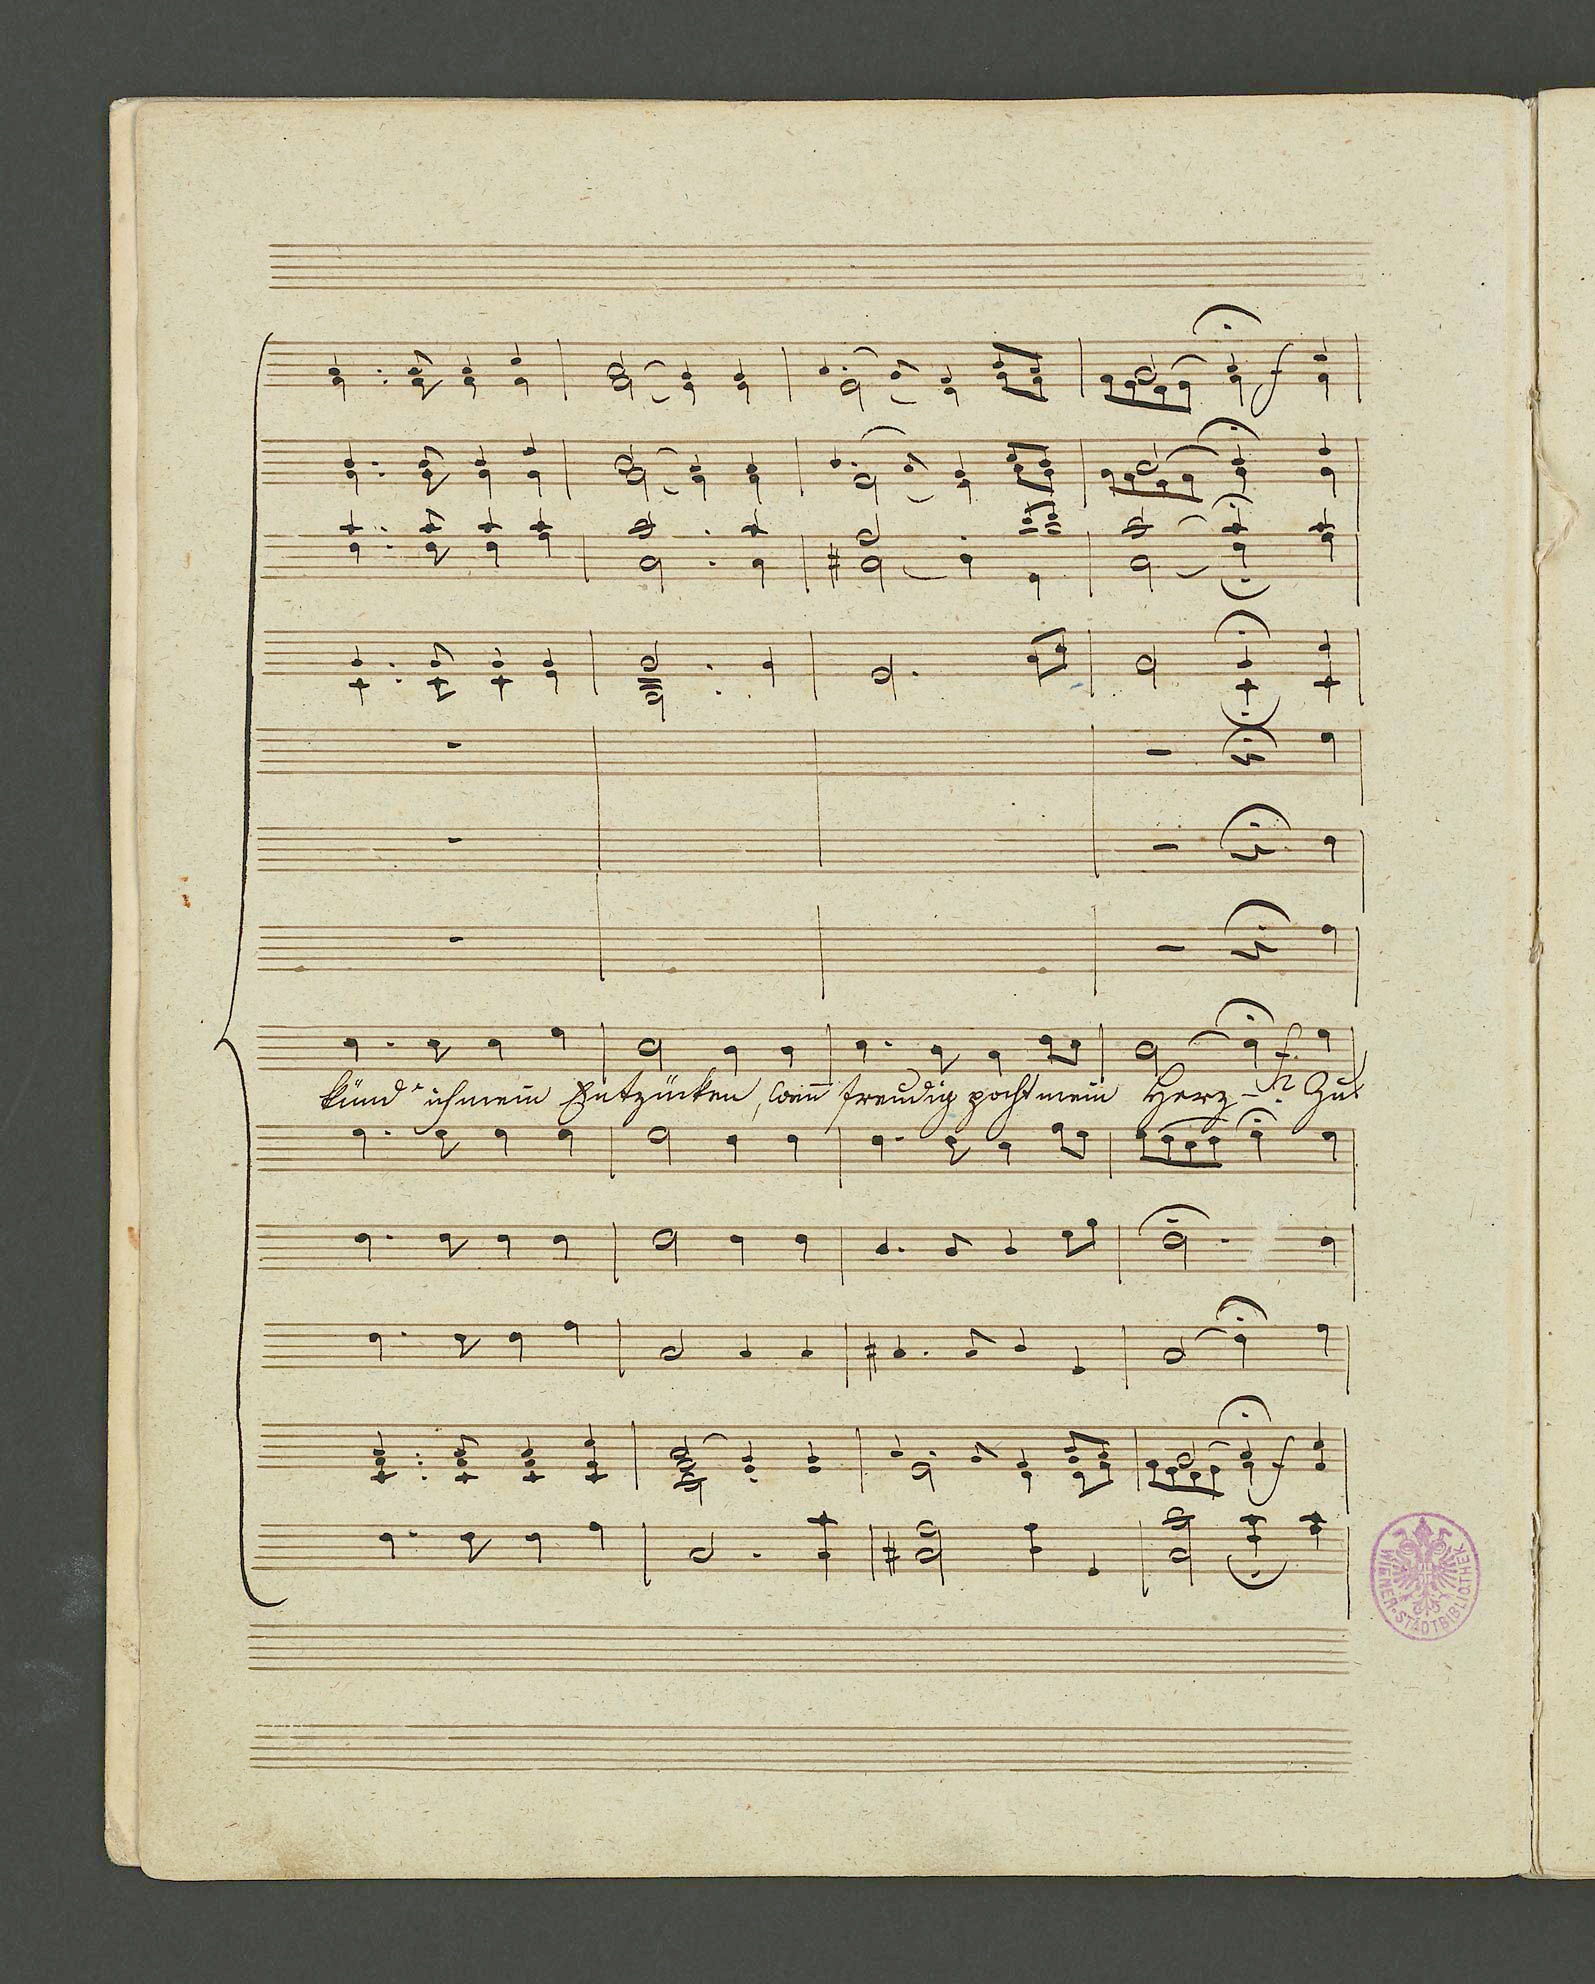 f
f
künd' ich mein Entzücken, wenn freudig pocht mein Herz-? Zu
f
WIENER · STADTBIBLIOTHEK